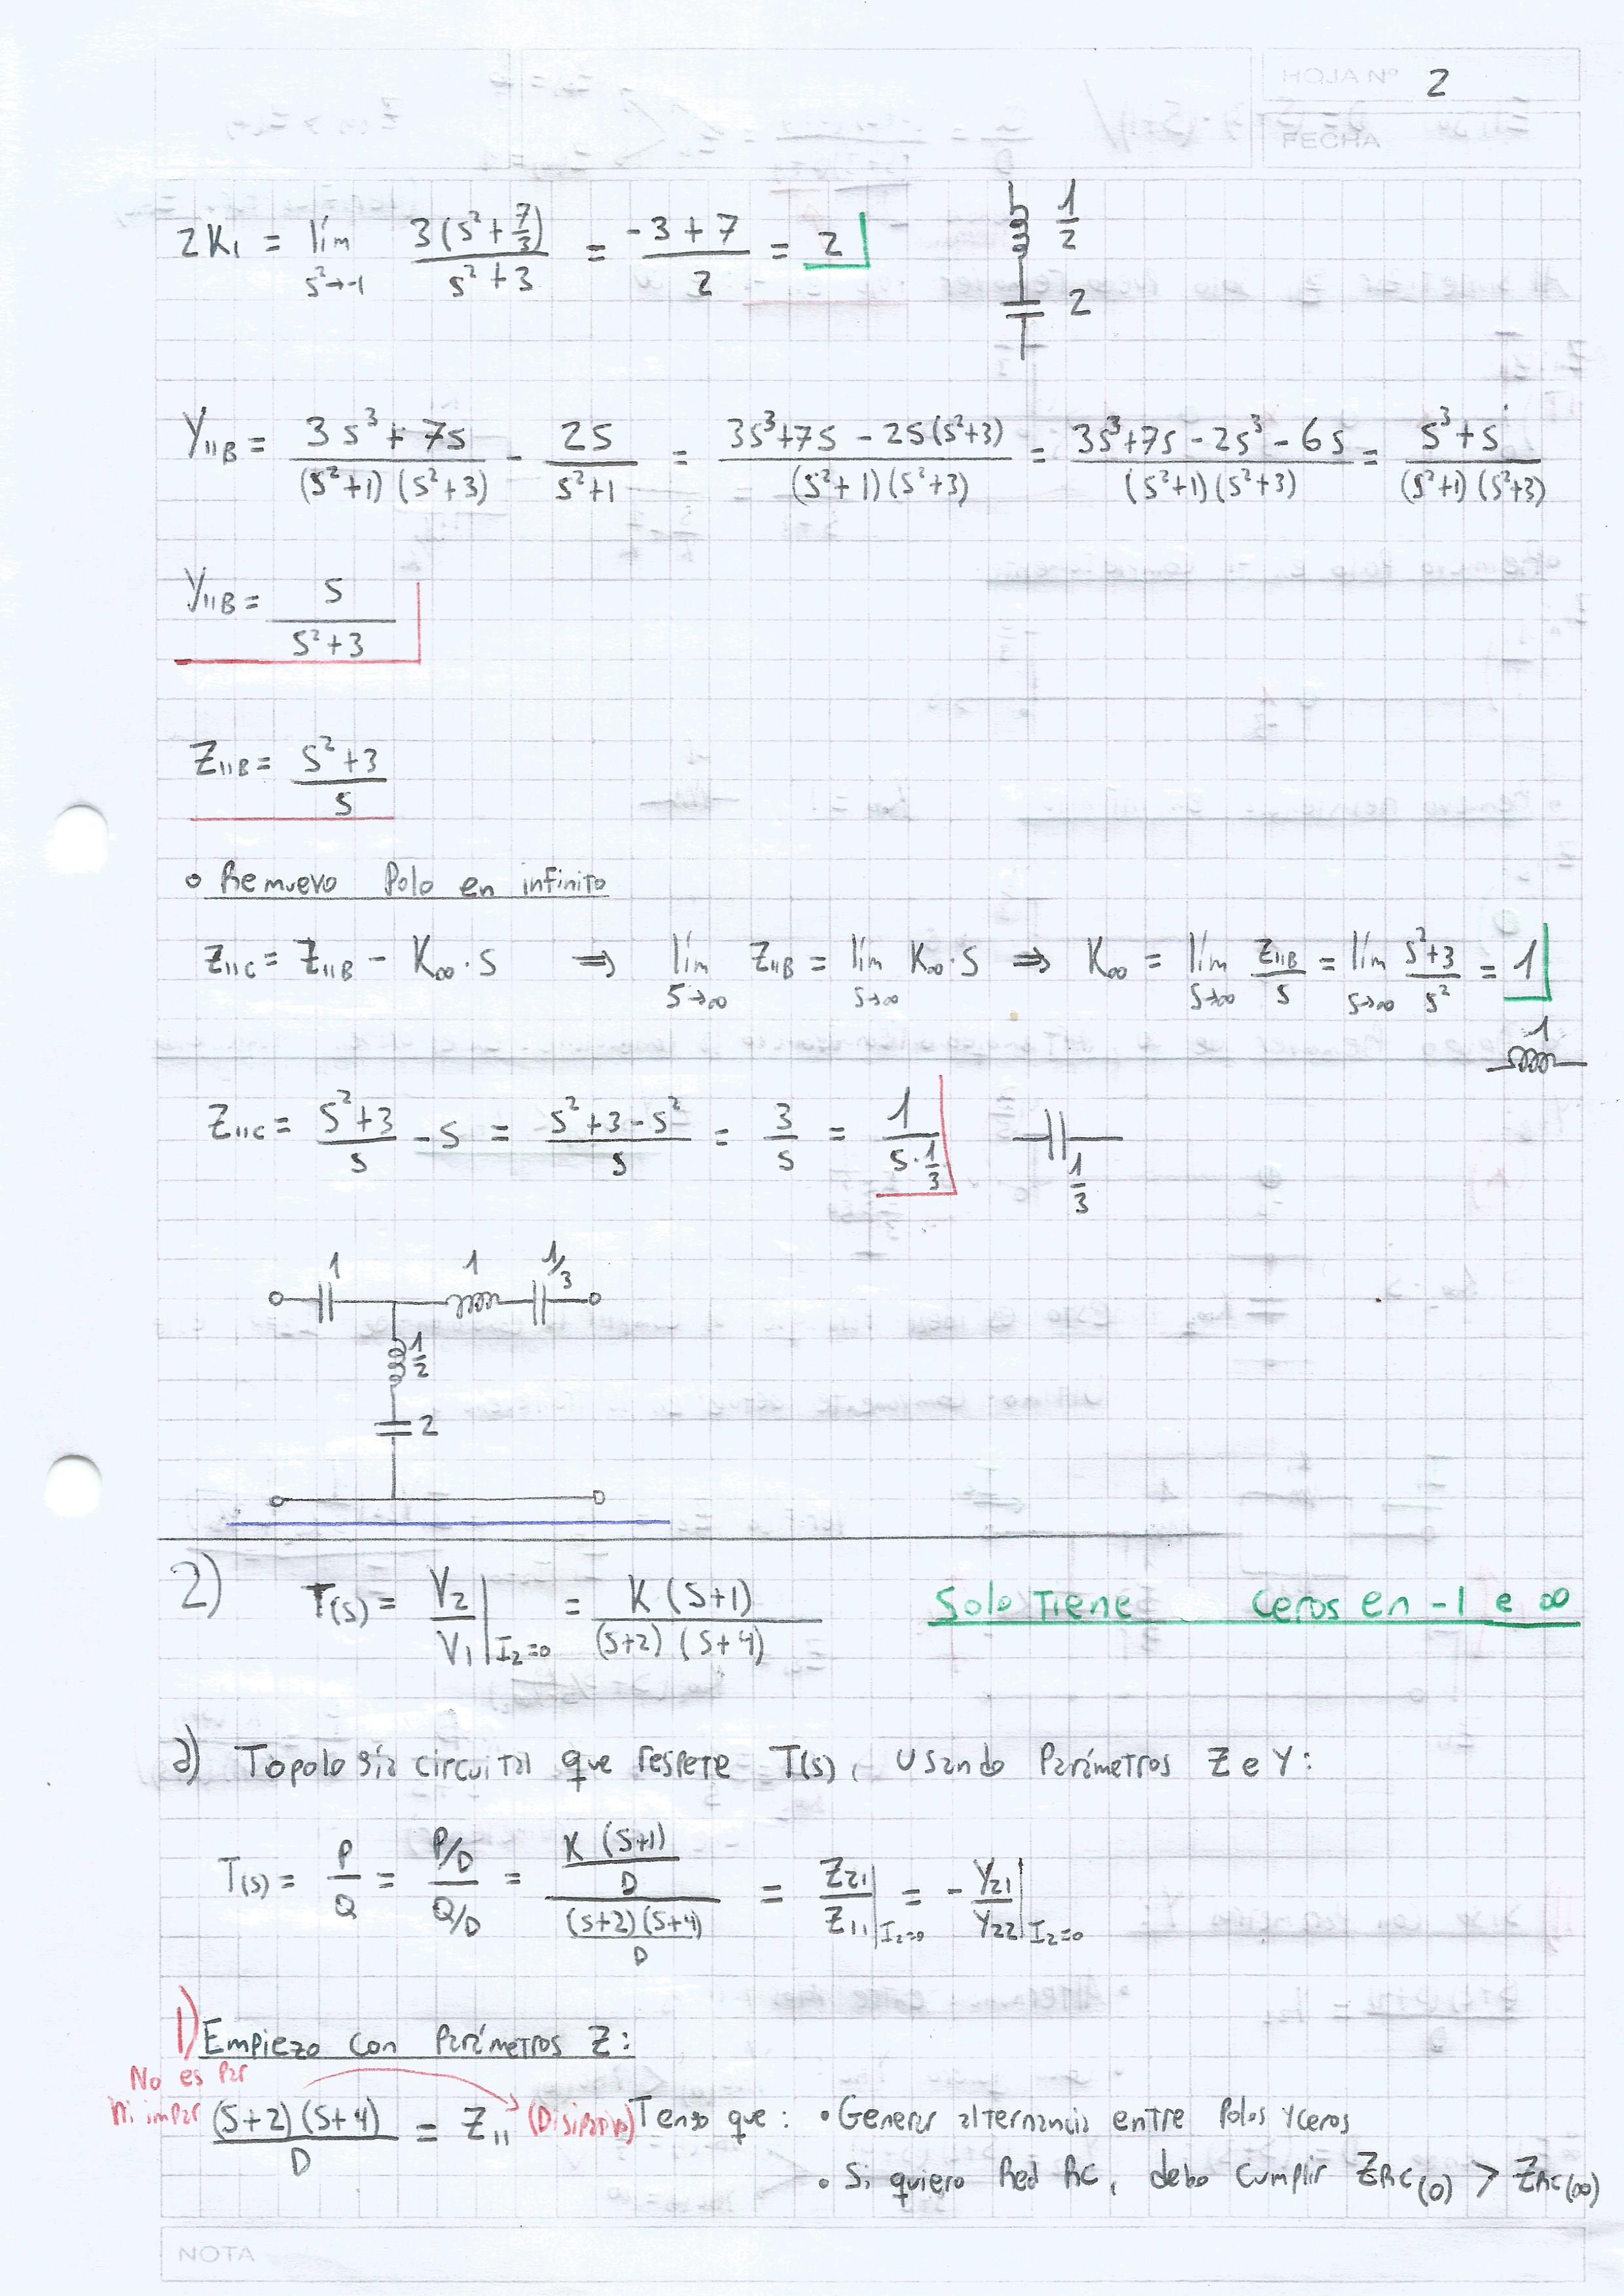 HOJA Nº 2
FECHA
2K₁ = lím s²→-1 3(s²+7/3)/(s²+3) = (-3+7)/2 = 2
1/2
2
Y₁₁B = (3s³+7s)/((s²+1)(s²+3)) - 2s/(s²+1) = (3s³+7s-2s(s²+3))/((s²+1)(s²+3)) = (3s³+7s-2s³-6s)/((s²+1)(s²+3)) = (s³+s)/((s²+1)(s²+3))
Y₁₁B = s/(s²+3)
Z₁₁B = (s²+3)/s
• Remuevo Polo en infinito
Z₁₁C = Z₁₁B - K∞·s ⇒ lím s→∞ Z₁₁B = lím s→∞ K∞·s ⇒ K∞ = lím s→∞ Z₁₁B/s = lím s→∞ (s²+3)/s² = 1
1
Z₁₁C = (s²+3)/s - s = (s²+3-s²)/s = 3/s = 1/(s·1/3)
1/3
1 1 1/3
1/2
2
2) T(s) = V₂/V₁|I₂=0 = K(s+1)/((s+2)(s+4)) Solo Tiene ceros en -1 e ∞
a) Topología circuital que respete T(s), usando Parámetros Z e Y:
T(s) = P/Q = (P/D)/(Q/D) = (K(s+1)/D)/((s+2)(s+4)/D) = Z₂₁/Z₁₁|I₂=0 = -Y₂₁/Y₂₂|I₂=0
1) Empiezo con Parámetros Z:
No es par
ni impar (s+2)(s+4)/D = Z₁₁ (Disipativo) Tengo que: • Generar alternancia entre Polos y ceros
• Si quiero Red RC, debo cumplir ZRC(0) > ZRC(∞)
NOTA